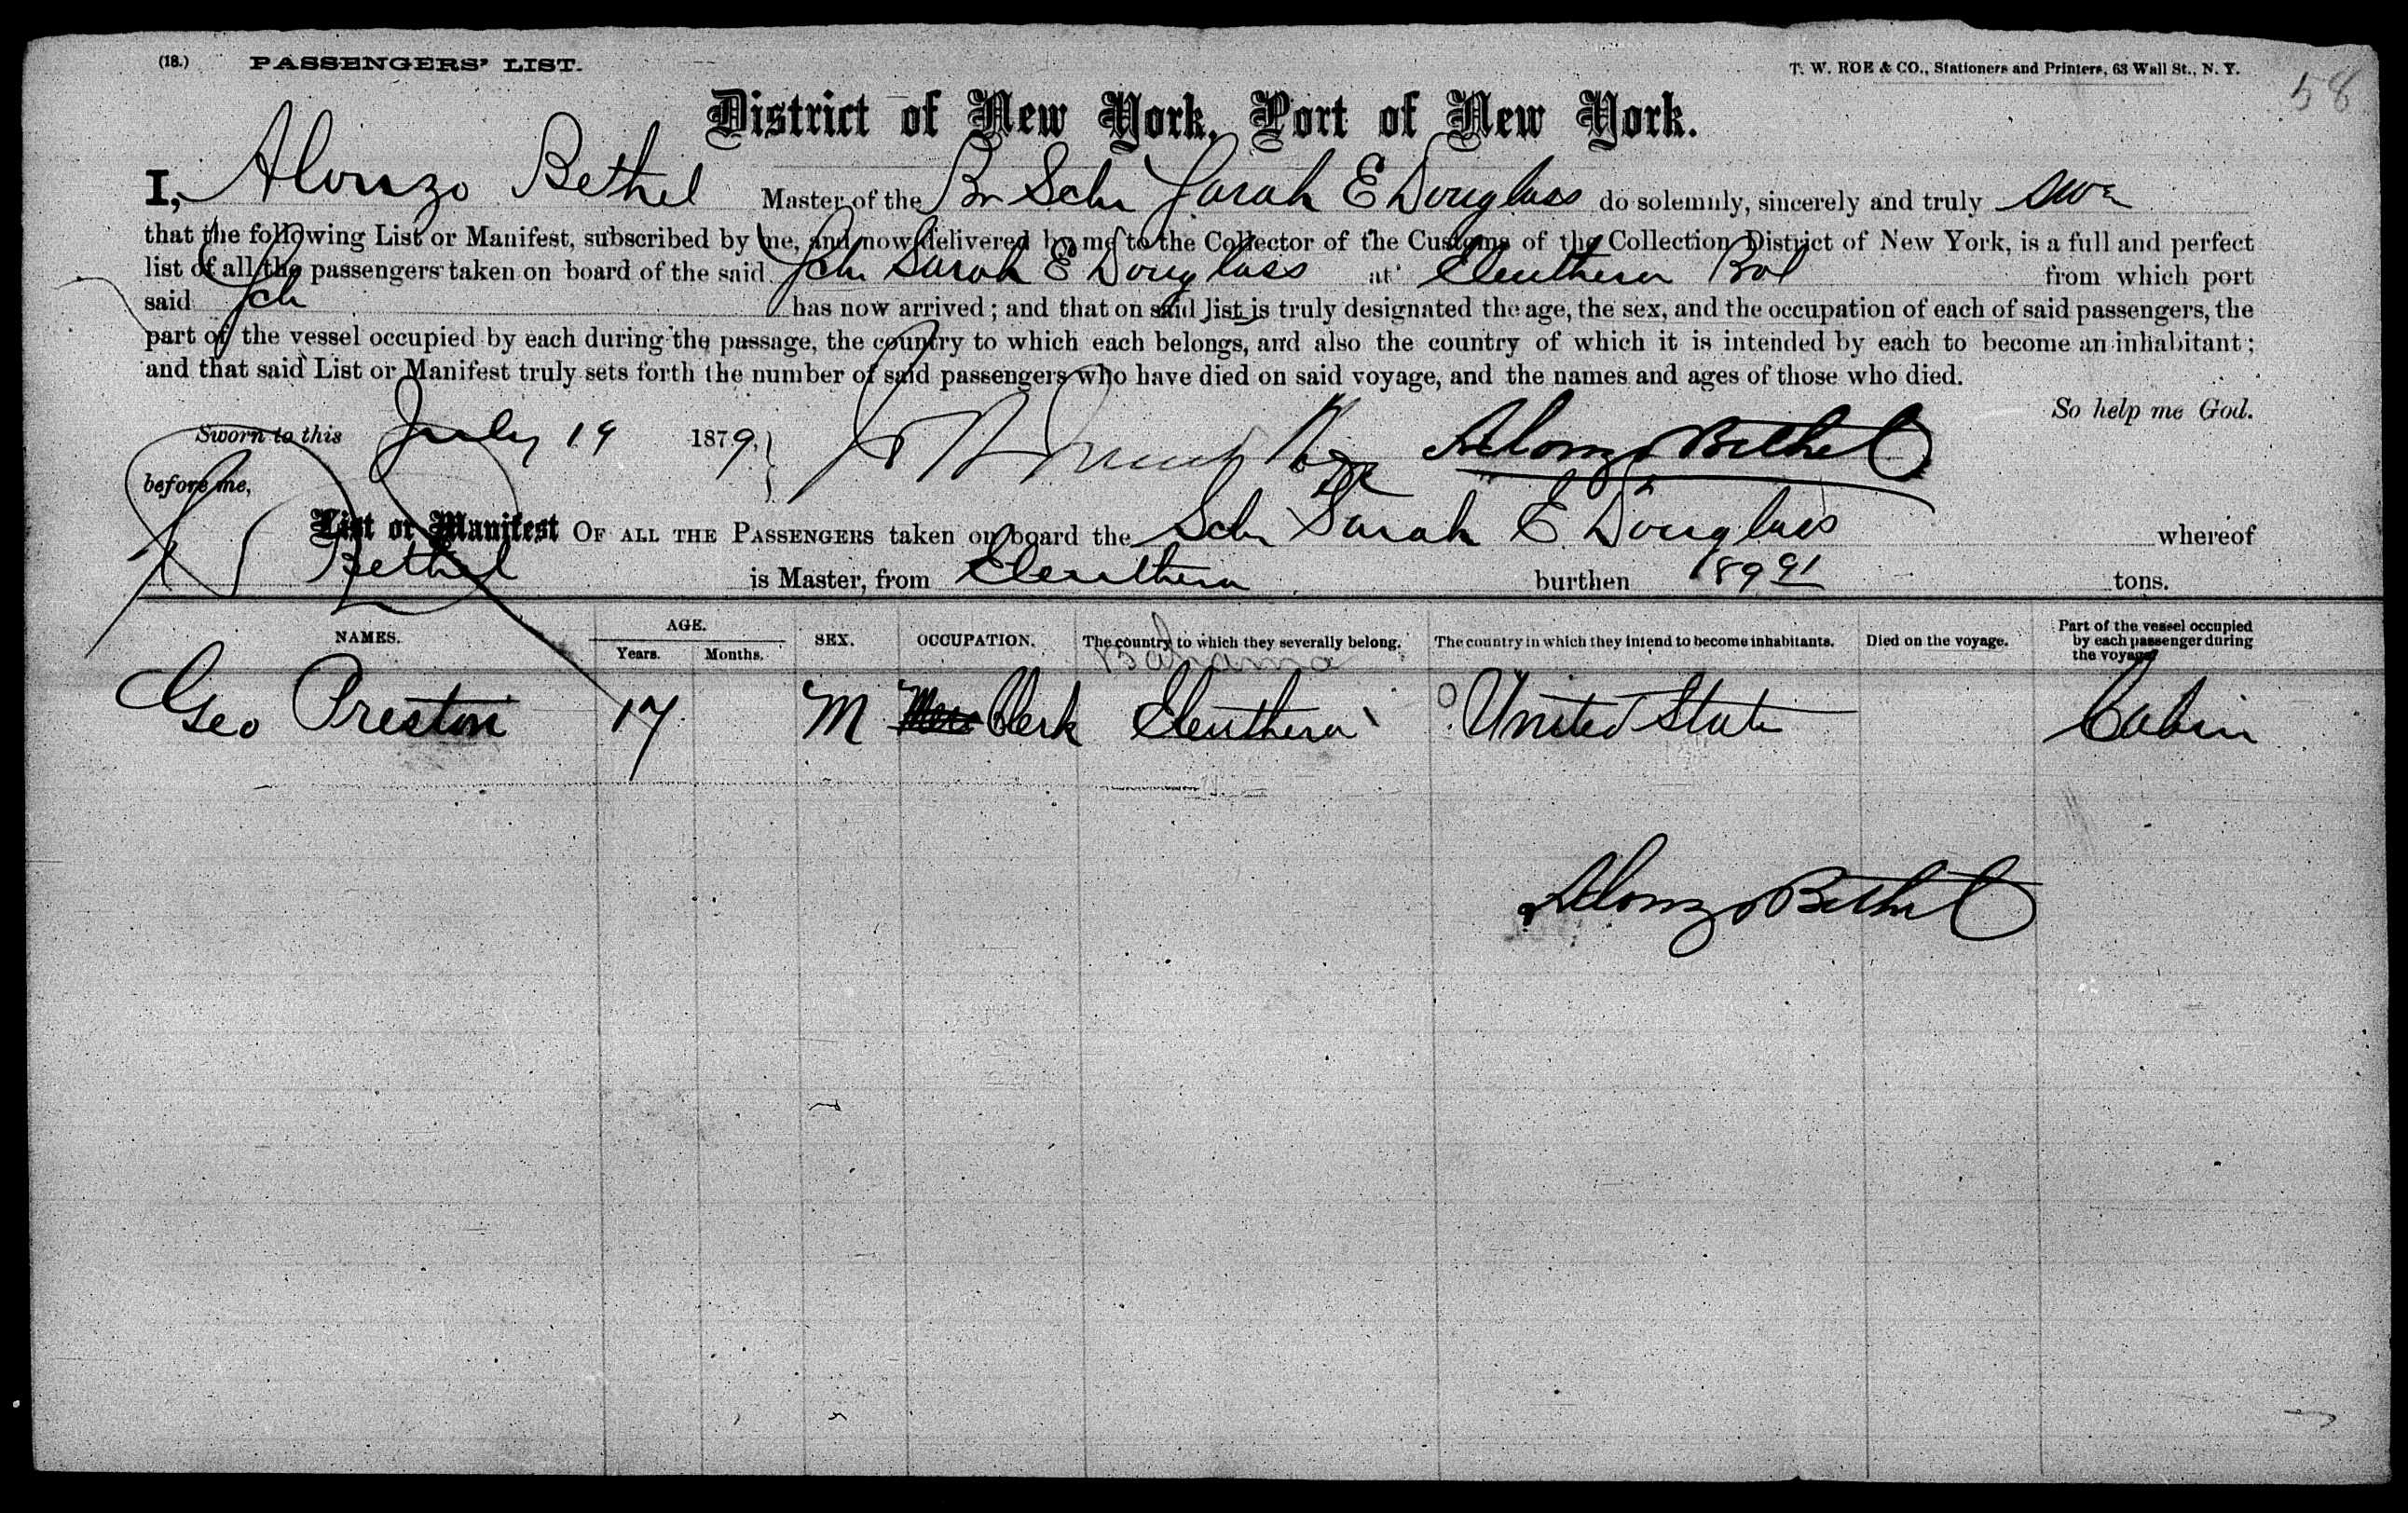 (18.) PASSENGERS' LIST. T. W. ROE & CO., Stationers and Printers, 63 Wall St., N. Y. 58
District of New York, Port of New York.
I, Alonzo Bethel Master of the Br Schr Sarah E Douglass do solemnly, sincerely and truly
that the following List or Manifest, subscribed by me, and now delivered by me to the Collector of the Customs of the Collection District of New York, is a full and perfect
list of all the passengers taken on board of the said Schr Sarah E Douglass at Eleuthera from which port
said Sch has now arrived; and that on said list is truly designated the age, the sex, and the occupation of each of said passengers, the
part of the vessel occupied by each during the passage, the country to which each belongs, and also the country of which it is intended by each to become an inhabitant;
and that said List or Manifest truly sets forth the number of said passengers who have died on said voyage, and the names and ages of those who died.
So help me God.
Sworn to this July 19 1879. Alonzo Bethel
before me,
List or Manifest OF ALL THE PASSENGERS taken on board the Schr Sarah E. Douglass whereof
Bethel is Master, from Eleuthera burthen 189 91 tons.
NAMES. AGE. Years. Months. SEX. OCCUPATION. The country to which they severally belong. The country in which they intend to become inhabitants. Died on the voyage. Part of the vessel occupied by each passenger during the voyage
Bahama
Geo Preston 17 M Clerk Eleuthera United States Cabin
Alonzo Bethel